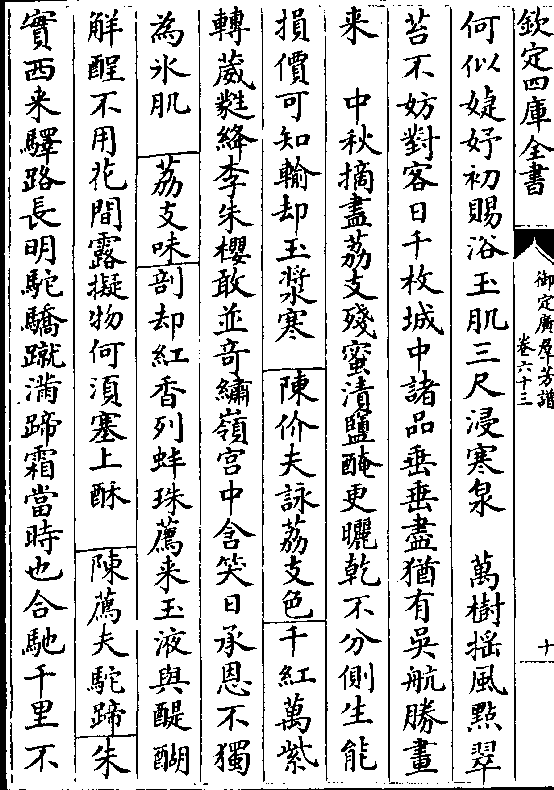 欽定四庫全書
御定廣羣芳譜
卷六十三
十
何似婕妤初賜浴玉肌三尺浸寒泉　萬樹揺風㸃翠
苔不妨對客日千枚城中諸品垂垂盡猶有吳航勝畫
来　中秋摘盡荔支殘蜜漬鹽醃更曬乾不分側生能
損價可知輸却玉漿寒　陳价夫詠荔支色千紅萬紫
轉葳蕤絳李朱櫻敢並竒繡嶺宫中含笑日承恩不獨
為氷肌　荔支味剖却紅香列蚌珠薦来玉液與醍醐
觧酲不用花間露擬物何湏塞上酥　陳薦夫駝蹄朱
實西来驛路長明駝驕蹴滿蹄霜當時也合馳千里不